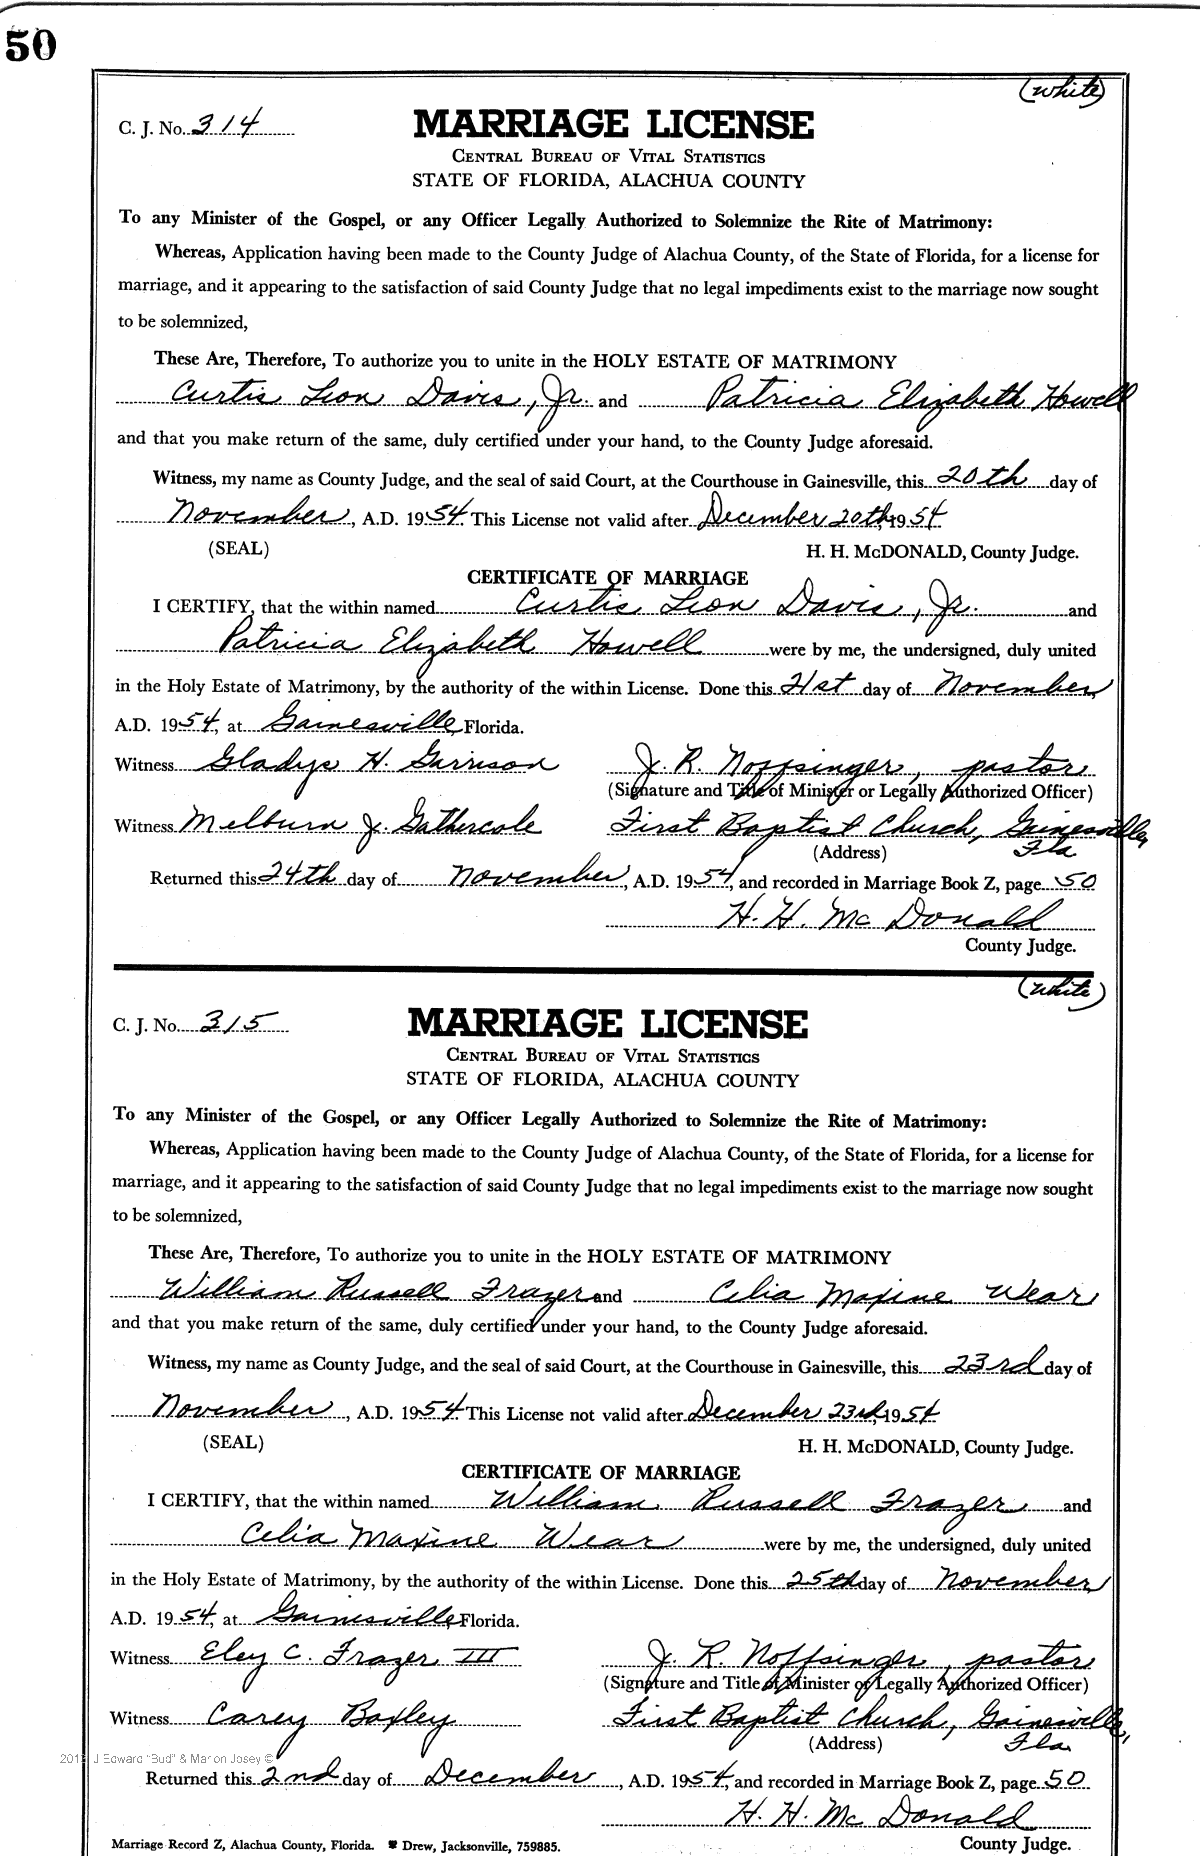 50
(white)
C. J. No. 314
MARRIAGE LICENSE
CENTRAL BUREAU OF VITAL STATISTICS
STATE OF FLORIDA, ALACHUA COUNTY
To any Minister of the Gospel, or any Officer Legally Authorized to Solemnize the Rite of Matrimony:
Whereas, Application having been made to the County Judge of Alachua County, of the State of Florida, for a license for
marriage, and it appearing to the satisfaction of said County Judge that no legal impediments exist to the marriage now sought
to be solemnized,
These Are, Therefore, To authorize you to unite in the HOLY ESTATE OF MATRIMONY
Curtis Leon Davis, Jr. and Patricia Elizabeth Howell
and that you make return of the same, duly certified under your hand, to the County Judge aforesaid.
Witness, my name as County Judge, and the seal of said Court, at the Courthouse in Gainesville, this 20th day of
November, A.D. 1954. This License not valid after December 20th, 1954
(SEAL) H. H. McDONALD, County Judge.
CERTIFICATE OF MARRIAGE
I CERTIFY, that the within named Curtis Leon Davis, Jr. and
Patricia Elizabeth Howell were by me, the undersigned, duly united
in the Holy Estate of Matrimony, by the authority of the within License. Done this 21st day of November,
A.D. 1954, at Gainesville, Florida.
Witness Gladys H. Garrison J. R. Noffsinger, pastor
(Signature and Title of Minister or Legally Authorized Officer)
Witness Melburn J. Gathercole First Baptist Church, Gainesville,
(Address) Fla.
Returned this 24th day of November, A.D. 1954, and recorded in Marriage Book Z, page 50
H. H. McDonald
County Judge.
(white)
C. J. No. 315
MARRIAGE LICENSE
CENTRAL BUREAU OF VITAL STATISTICS
STATE OF FLORIDA, ALACHUA COUNTY
To any Minister of the Gospel, or any Officer Legally Authorized to Solemnize the Rite of Matrimony:
Whereas, Application having been made to the County Judge of Alachua County, of the State of Florida, for a license for
marriage, and it appearing to the satisfaction of said County Judge that no legal impediments exist to the marriage now sought
to be solemnized,
These Are, Therefore, To authorize you to unite in the HOLY ESTATE OF MATRIMONY
William Russell Frazer and Celia Maxine Wear
and that you make return of the same, duly certified under your hand, to the County Judge aforesaid.
Witness, my name as County Judge, and the seal of said Court, at the Courthouse in Gainesville, this 23rd day of
November, A.D. 1954. This License not valid after December 23rd, 1954
(SEAL) H. H. McDONALD, County Judge.
CERTIFICATE OF MARRIAGE
I CERTIFY, that the within named William Russell Frazer and
Celia Maxine Wear were by me, the undersigned, duly united
in the Holy Estate of Matrimony, by the authority of the within License. Done this 25th day of November,
A.D. 1954, at Gainesville, Florida.
Witness Eley C. Frazer III J. R. Noffsinger, pastor
(Signature and Title of Minister or Legally Authorized Officer)
Witness Carey Baxley First Baptist Church, Gainesville,
(Address) Fla.
J Edward "Bud" & Marion Josey ©
Returned this 2nd day of December, A.D. 1954, and recorded in Marriage Book Z, page 50
H. H. McDonald
Marriage Record Z, Alachua County, Florida. Drew, Jacksonville, 759885. County Judge.